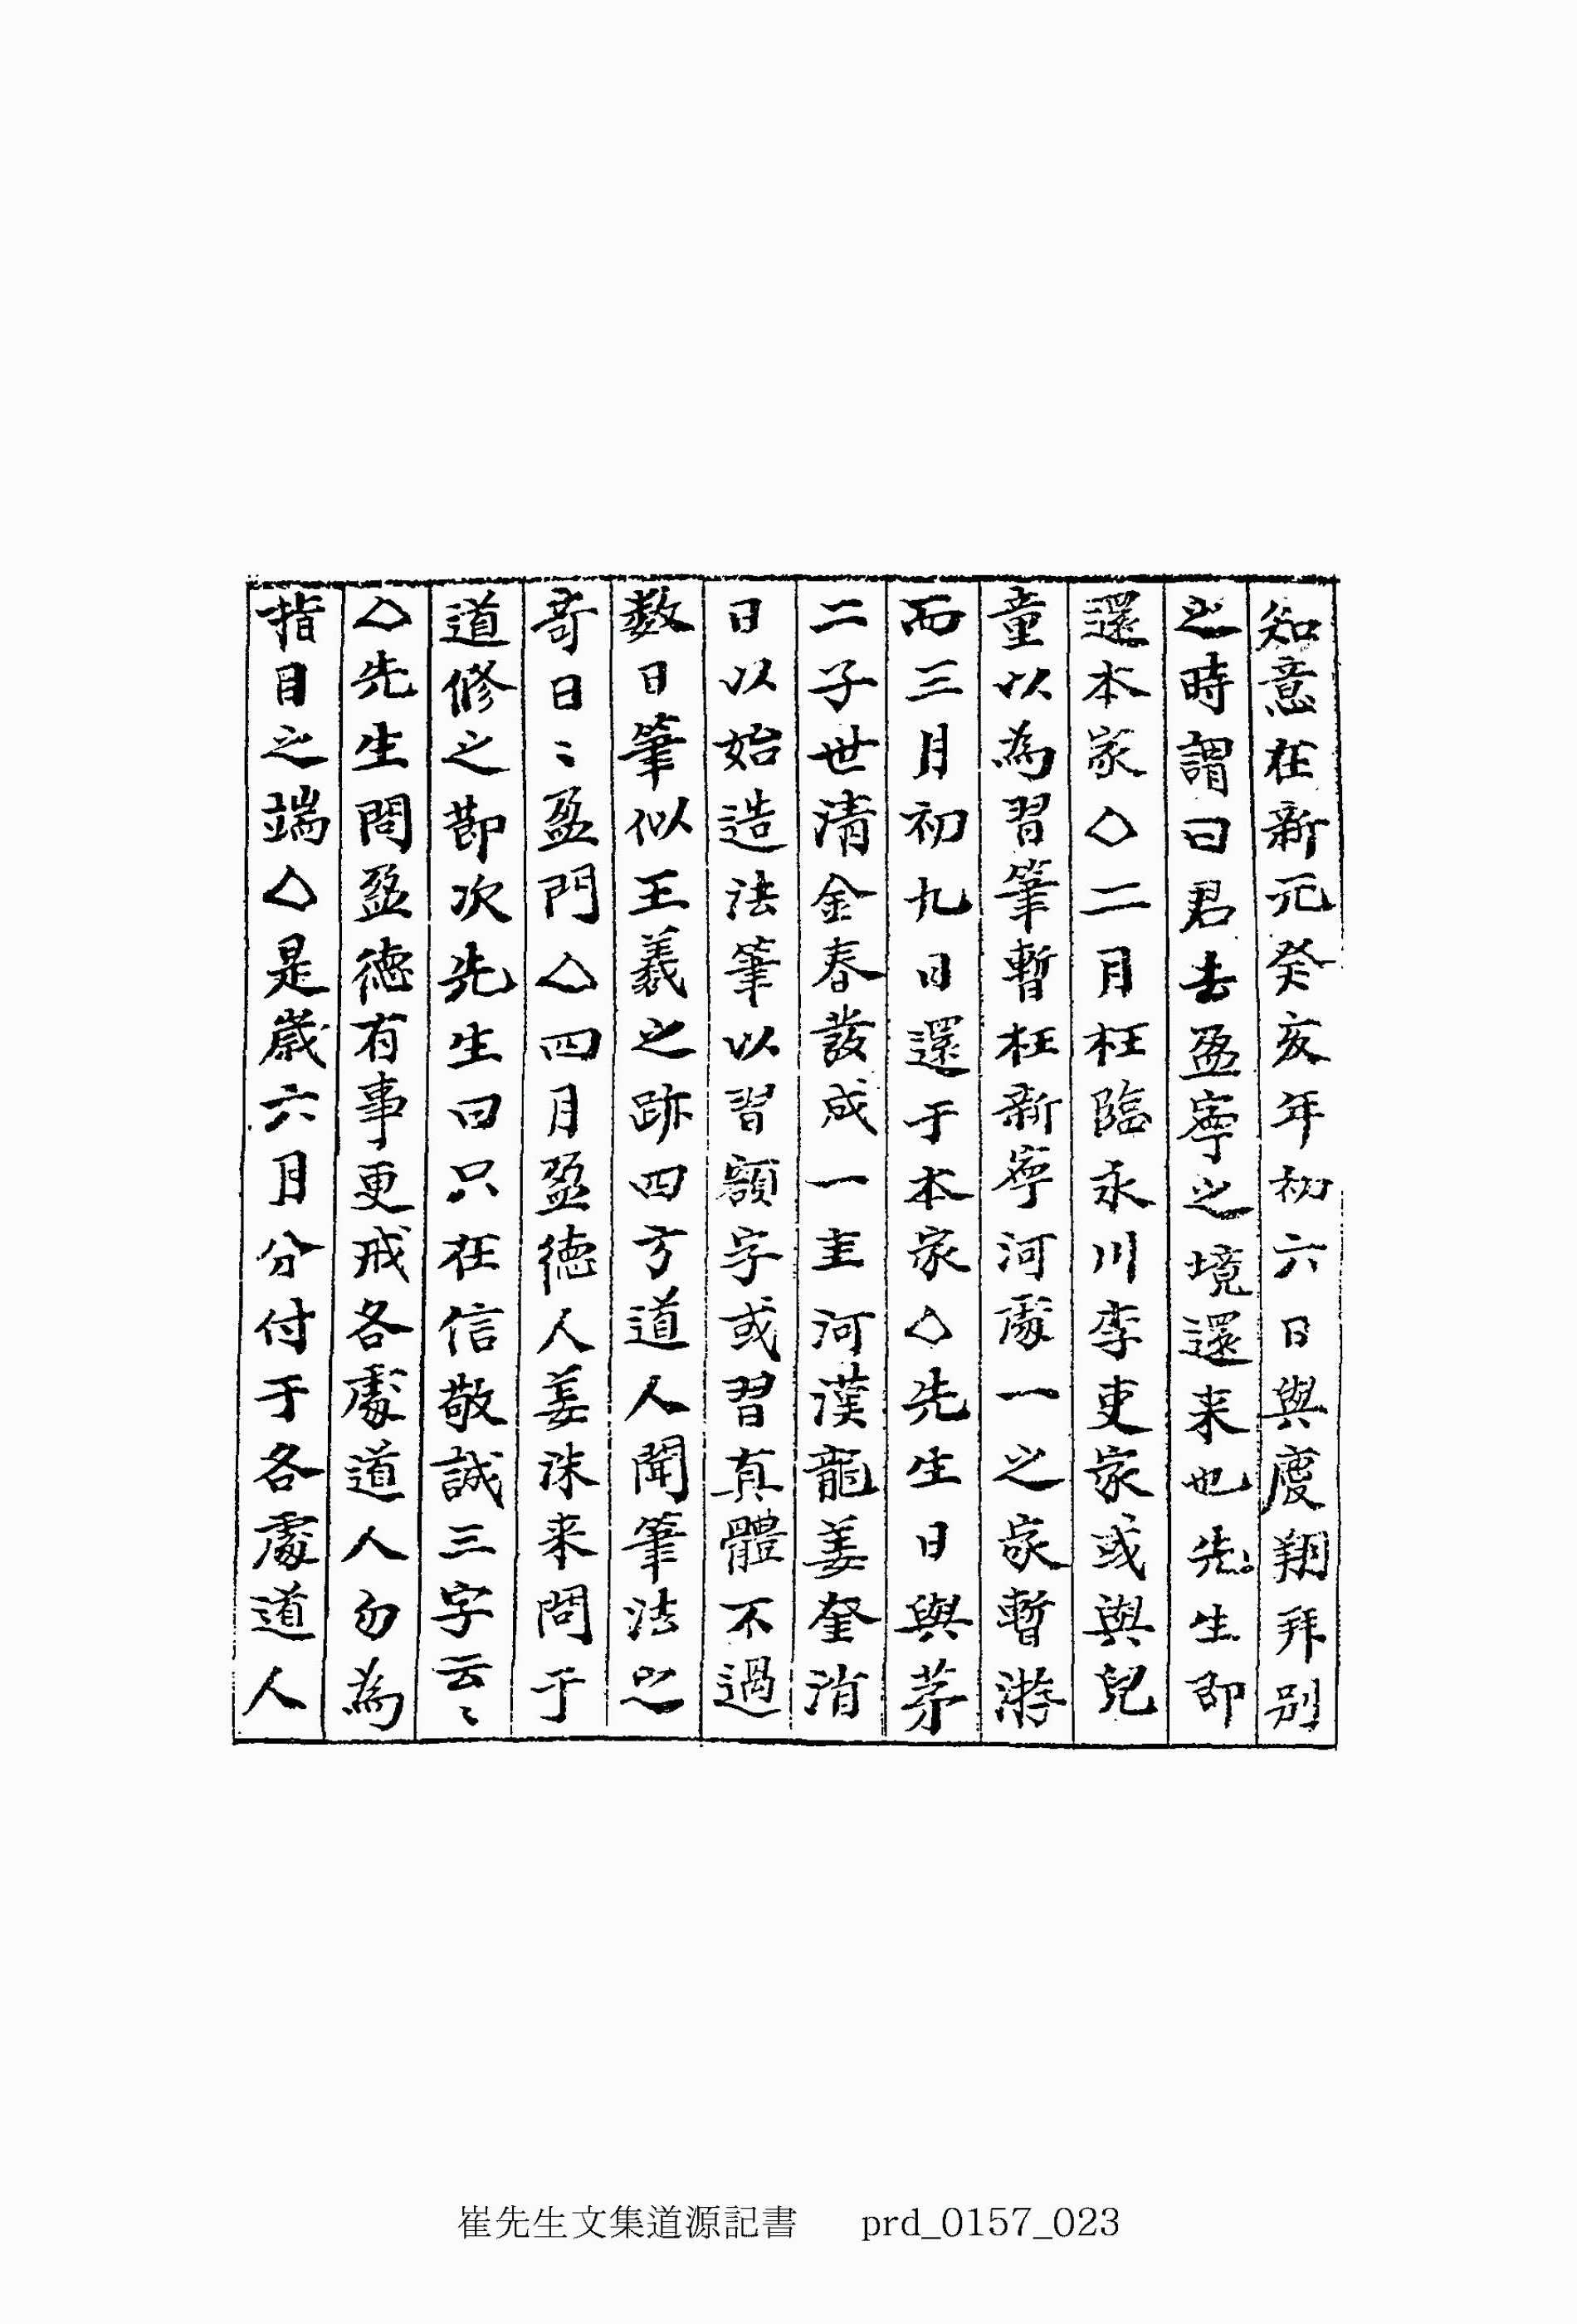 知意在新元癸亥年初六日與慶翔拜別
之時謂曰君去盈寧之境還来也先生即
還本家◇二月枉臨永川李吏家或與兒
童以為習筆暫枉新寧河處一之家暫游
而三月初九日還于本家◇先生日與茅
二子世清金春發成一圭河漢龍姜奎消
日以始造法筆以習額字或習真體不過
数日筆似王羲之跡四方道人聞筆法之
奇日〻盈門◇四月盈德人姜洙来問于
道修之節次先生曰只在信敬誠三字云〻
◇先生問盈德有事更戒各處道人勿為
指目之端◇是歲六月分付于各處道人
崔先生文集道源記書 prd_0157_023